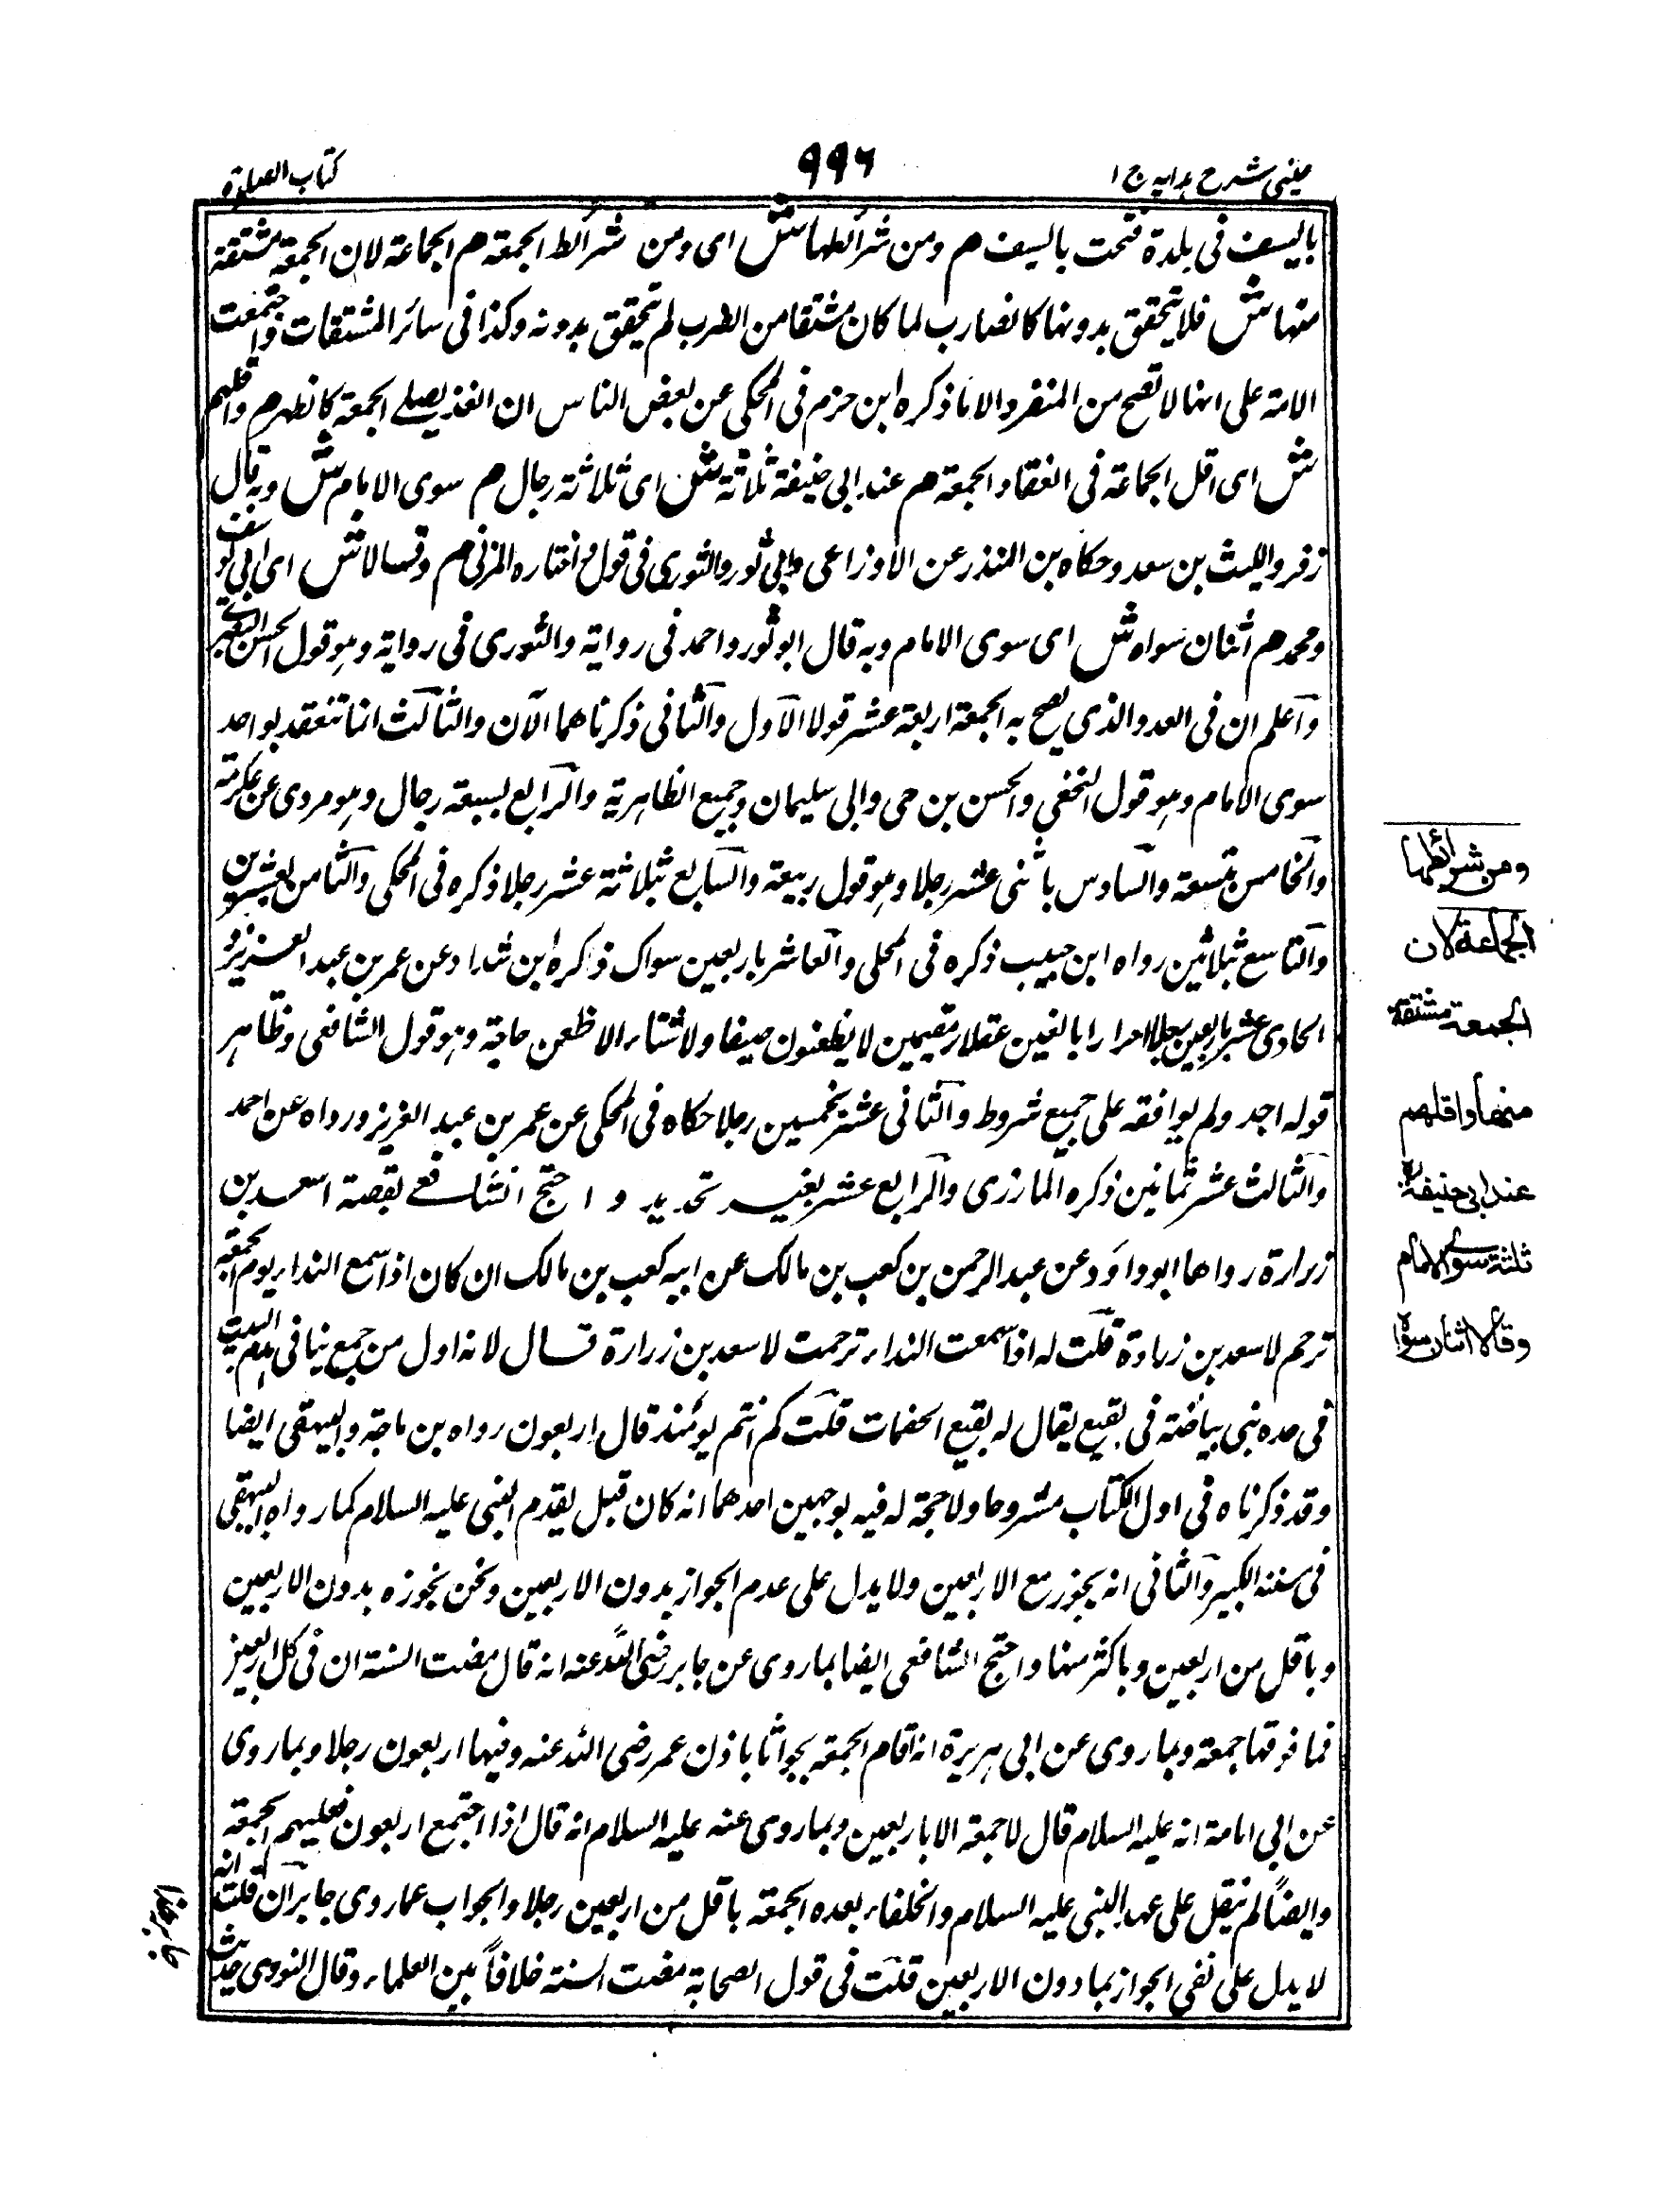 عینی شرح ہدایہ ج ۱
۹۹۶
کتاب الصلوة
بالسیف فی بلدة فتحت بالسیف هم ومن شرائطها ش ای ومن شرائط الجمعة هم الجماعة لان الجمعة مشتقة
منها ش فلا یتحقق بدونها کالضارب لما کان مشتقا من الضرب لم یتحقق بدونه وکذا فی سائر المشتقات واجتمعت
الامة علی انها لا تصح من المنفرد الا ما ذکره ابن حزم فی المحلی عن بعض الناس ان الفذ یصلے الجمعة کالظهر هم واقلهم
ش ای اقل الجماعة فی انعقاد الجمعة هم عند ابی حنیفة ثلاثة ش ای ثلاثة رجال هم سوی الامام ش وبه قال
زفر واللیث بن سعد وحکاه بن المنذر عن الاوزاعی وابی ثور والثوری فی قول واختاره المزنی هم وقالا ش ای ابی یوسف
ومحمد هم اثنان سواه ش ای سوی الامام وبه قال ابو ثور واحمد فی روایة والثوری فی روایة وهو قول الحسن البصرے
واعلم ان فی العدد الذی یصح به الجمعة اربعة عشر قولا الاول والثانی ذکرناهما الآن والثالث انها تنعقد بواحد
سوی الامام وهو قول النخعی والحسن بن حی وابی سلیمان وجمیع الظاهریة والرابع بسبعة رجال وهو مروی عن عکرمة
والخامس بتسعة والسادس باثنی عشر رجلا وهو قول ربیعة والسابع بثلاثة عشر رجلا ذکره فی المحلی والثامن بعشرین
والتاسع بثلاثین رواه ابن حبیب ذکره فی المحلی والعاشر باربعین سواک ذکره ابن شداد عن عمر بن عبد العزیز و
الحادی عشر باربعین رجلا احرارا بالغین عقلاء مقیمین لا یظعنون صیفا ولا شتاء الا ظعن حاجة وهو قول الشافعی وظاهر
قوله احمد ولم یوافقه علی جمیع شروط والثانی عشر بخمسین رجلا حکاه فی المحلی عن عمر بن عبد العزیز ورواه عن احمد
والثالث عشر ثمانین ذکره المازری والرابع عشر بغیر تحدید و احتج الشافعے بقصة اسعد بن
زرارة رواها ابو داؤد عن عبد الرحمن بن کعب بن مالک عن ابیه کعب بن مالک ان کان اذا سمع النداء یوم الجمعة
ترحم لاسعد بن زیادة قلت له اذا سمعت النداء ترحمت لاسعد بن زرارة قال لانه اول من جمع بنا فی هزم البیت
فی حره بنی بیاضة فی بقیع یقال له بقیع الخضمات قلت کم انتم یومئذ قال اربعون رواه بن ماجة والبیهقی ایضا
وقد ذکرناه فی اول الکتاب مشروحا ولا حجة له فیه بوجهین احدهما انه کان قبل یقدم النبی علیه السلام کما رواه البیهقی
فی سننه الکبیر والثانی انه یجوز مع الاربعین ولا یدل علی عدم الجواز بدون الاربعین ونحن نجوزه بدون الاربعین
وباقل من اربعین وباکثر منها واحتج الشافعی ایضا بما روی عن جابر رضی الله عنه انه قال مضت السنة ان فی کل اربعین
فما فوقها جمعة وبما روی عن ابی هریرة انه اقام الجمعة بجواثا باذن عمر رضی الله عنه وفیها اربعون رجلا وبما روی
عن ابی امامة انه علیه السلام قال لا جمعة الا باربعین وبما روی عنه علیه السلام انه قال اذا اجتمع اربعون فعلیهم الجمعة
وایضاً لم ینقل علی عهد النبی علیه السلام والخلفاء بعده الجمعة باقل من اربعین رجلا والجواب عما روی جابر ان قلت انه
لا یدل علی نفی الجواز بما دون الاربعین قلت فی قول الصحابة مضت السنة خلافاً بین العلماء وقال النووی حدیث
ومن شرائطها
الجماعة لان
الجمعة مشتقة
منها واقلهم
عند ابی حنیفة
ثلثة سوے الامام
وقالا اثنان سواه